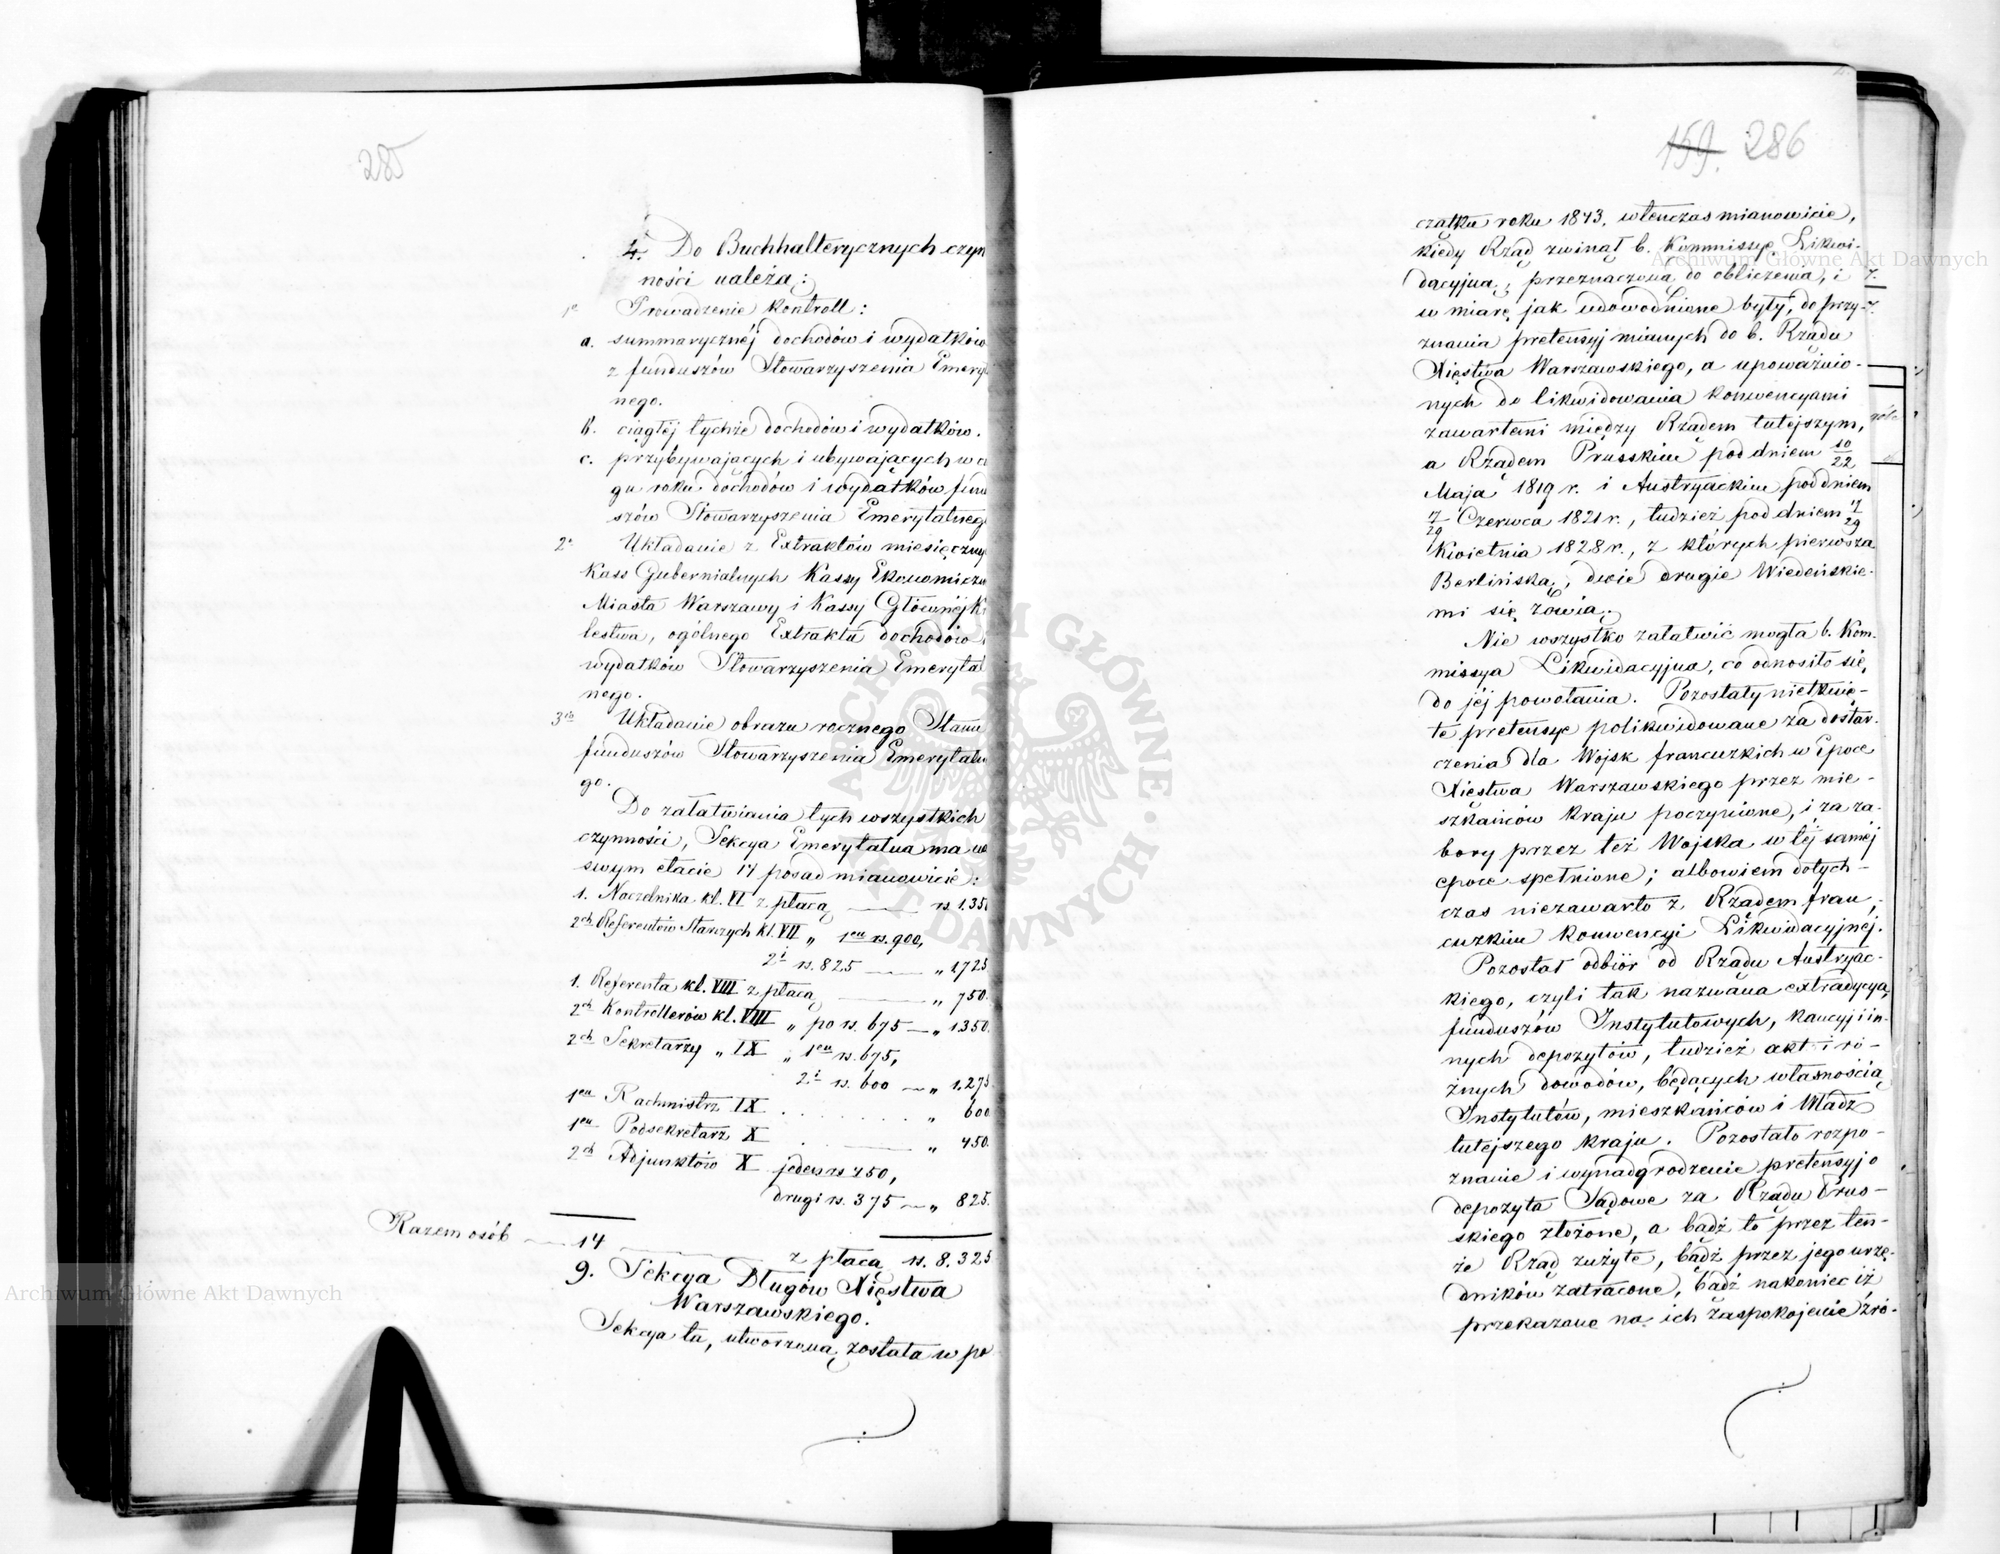 285
4. Do Buchhalterycznych czyn
ności należą:
1e Prowadzenie kontroll:
a. summarycznéj dochodów i wydatków
z funduszów Stowarzyszenia Emeryt
nego.
b. ciągłéj tychże dochodów i wydatków.
c. przybywających i ubywających w ci
gu roku dochodów i wydatków fundu
szów Stowarzyszenia Emerytalneg
2e Układanie z Extraktów miesięczny
Kass Gubernialnych Kassy Ekonomiczn
Miasta Warszawy i Kassy Głównéj K
lestwa, ogólnego Extraktu dochodów
wydatków Stowarzyszenia Emerytal
nego.
3cie Układanie obrazu rocznego Stanu
funduszów Stowarzyszenia Emerytaln
go.
Do załatwiania tych wszystkich
czynności, Sekcya Emerytalna ma w
swym etacie 14 posad mianowicie:
1. Naczelnika kl. VI z płacą — rs. 1.350
2ch Referentów Starszych kl. VII „ 1en rs. 900,
2i rs. 825 — „ 1725
1. Referenta kl. VIII z płacą — „ 750.
2ch Kontrollerów kl. VIII „ po rs. 675 — „ 1350.
2ch Sekretarzy „ IX „ 1en rs. 675,
2i rs. 600 — „ 1.275
1en Rachmistrz IX . . . . . . . „ 600
1en Podsekretarz X . — . „ 450.
2ch Adjunktów X jeden rs 450,
drugi rs. 375 — „ 825.
Razem osób — 14 — z płacą rs. 8.325
9. Sekcya Długów Xięstwa
Warszawskiego.
Sekcya ta, utworzoną została w po
159. 286
czątku roku 1843. wtenczas mianowicie,
kiedy Rząd zwinął b. Kommissyę Likwi-
dacyjną, przeznaczoną do obliczenia, i
w miarę jak udowodnione były, do przy-
znania pretensyj mianych do b. Rządu
Xięstwa Warszawskiego, a upoważnio-
nych do likwidowania konwencyami
zawartemi między Rządem tutejszym,
a Rządem Pruskim pod dniem 10/22
Maja 1819 r. i Austryackim pod dniem
17/29 Czerwca 1821 r., tudzież pod dniem 17/29
Kwietnia 1828 r., z których pierwsza
Berlińską, dwie drugie Wiedeńskie-
mi się zowią.
Nie wszystko załatwić mogła b. Kom-
missya Likwidacyjna, co odnosiło się,
do jéj powołania. Pozostały nietknię-
te pretensye polikwidowane za dostar-
czenia dla Wojsk francuzkich w Epoce
Xięstwa Warszawskiego przez mie-
szkańców kraju poczynione, i za za-
bory przez też Wojska w téj saméj
epoce spełnione; albowiem dotych-
czas niezawarto z Rządem fran-
cuzkim konwencyi Likwidacyjnéj.
Pozostał odbiór od Rządu Austryac-
kiego, czyli tak nazwana extradycya,
funduszów Instytutowych, kaucyj i in-
nych depozytów, tudzież akt i ró-
żnych dowodów, będących własnością
Instytutów, mieszkańców i Władz
tutejszego kraju. Pozostało rozpo-
znanie i wynadgrodzenie pretensyj o
depozyta Sądowe za Rządu Prus-
skiego złożone, a bądź to przez ten-
że Rząd zużyte, bądź przez jego urzę-
dników zatracone, bądź nakoniec iż
przekazane na ich zaspokojenie źró-
Archiwum Główne Akt Dawnych
Archiwum Główne Akt Dawnych
ARCHIWUM GŁÓWNE AKT DAWNYCH